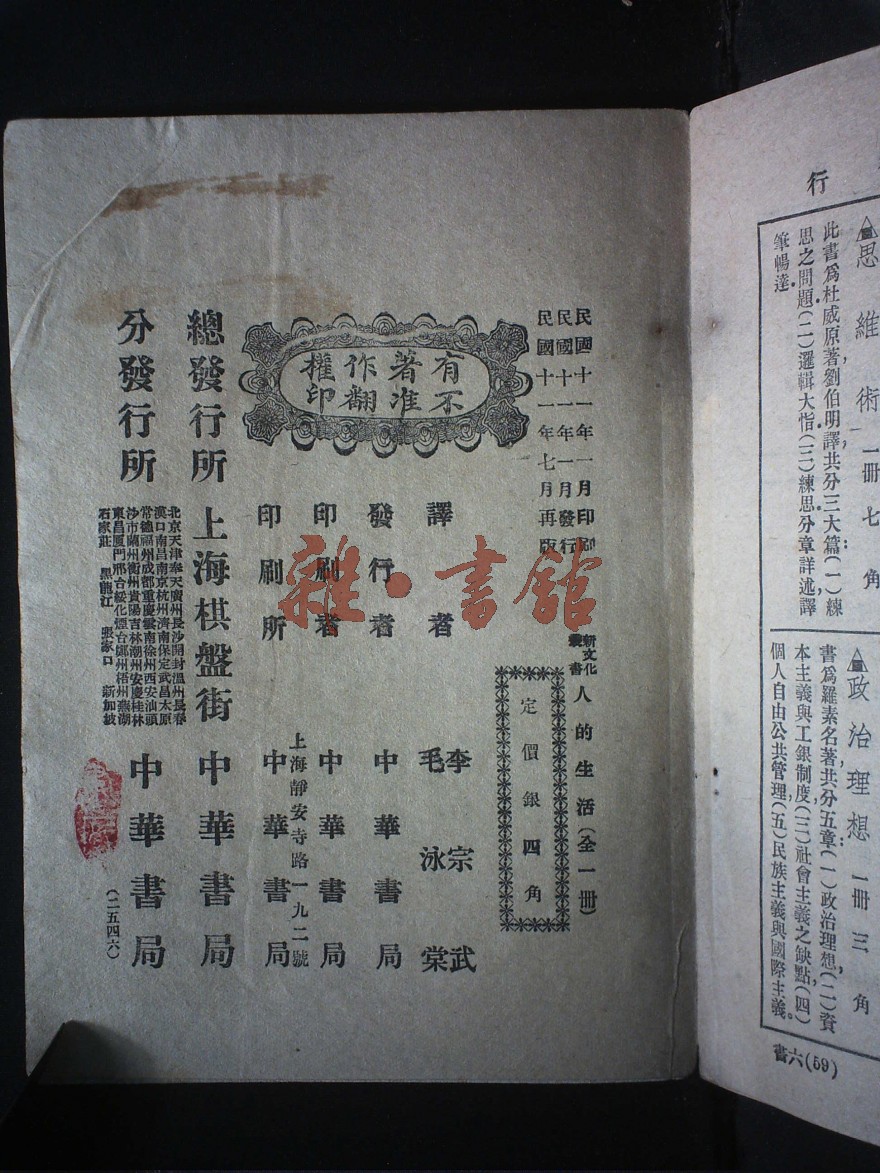 行
▲思維術 一冊 七角
此書爲杜威原著劉伯明譯共分三大篇(一)練
思之問題(二)邏輯大恉(三)練思分章詳述譯
筆暢達
▲政治理想 一冊 三角
書爲羅素名著共分五章(一)政治理想(二)資
本主義與工銀制度(三)社會主義之缺點(四)
個人自由公共管理(五)民族主義與國際主義。
書六(59)
民國十一年一月印刷
民國十一年一月發行
民國十一年七月再版
有不
著准
作翻
權印
新文化叢書 人的生活(全一冊)
定價銀四角
譯者 李宗武 毛泳棠
發行者 中華書局
印刷者 中華書局
印刷所 上海靜安寺路一九二號 中華書局
總發行所 上海棋盤街 中華書局
分發行所
北京天津奉天廣州長沙開封溫州長春
漢口南昌南京杭州濟南保定武昌太原
常德福州成都重慶雲南徐州西安汕頭
沙市蘭州衢州貴陽吉林潮州安慶桂林
東昌厦門邢台綏化煙台鄭州梧州蕪湖
石家莊 黑龍江 張家口 新加坡
中華書局
(二五四六)
雜·書館